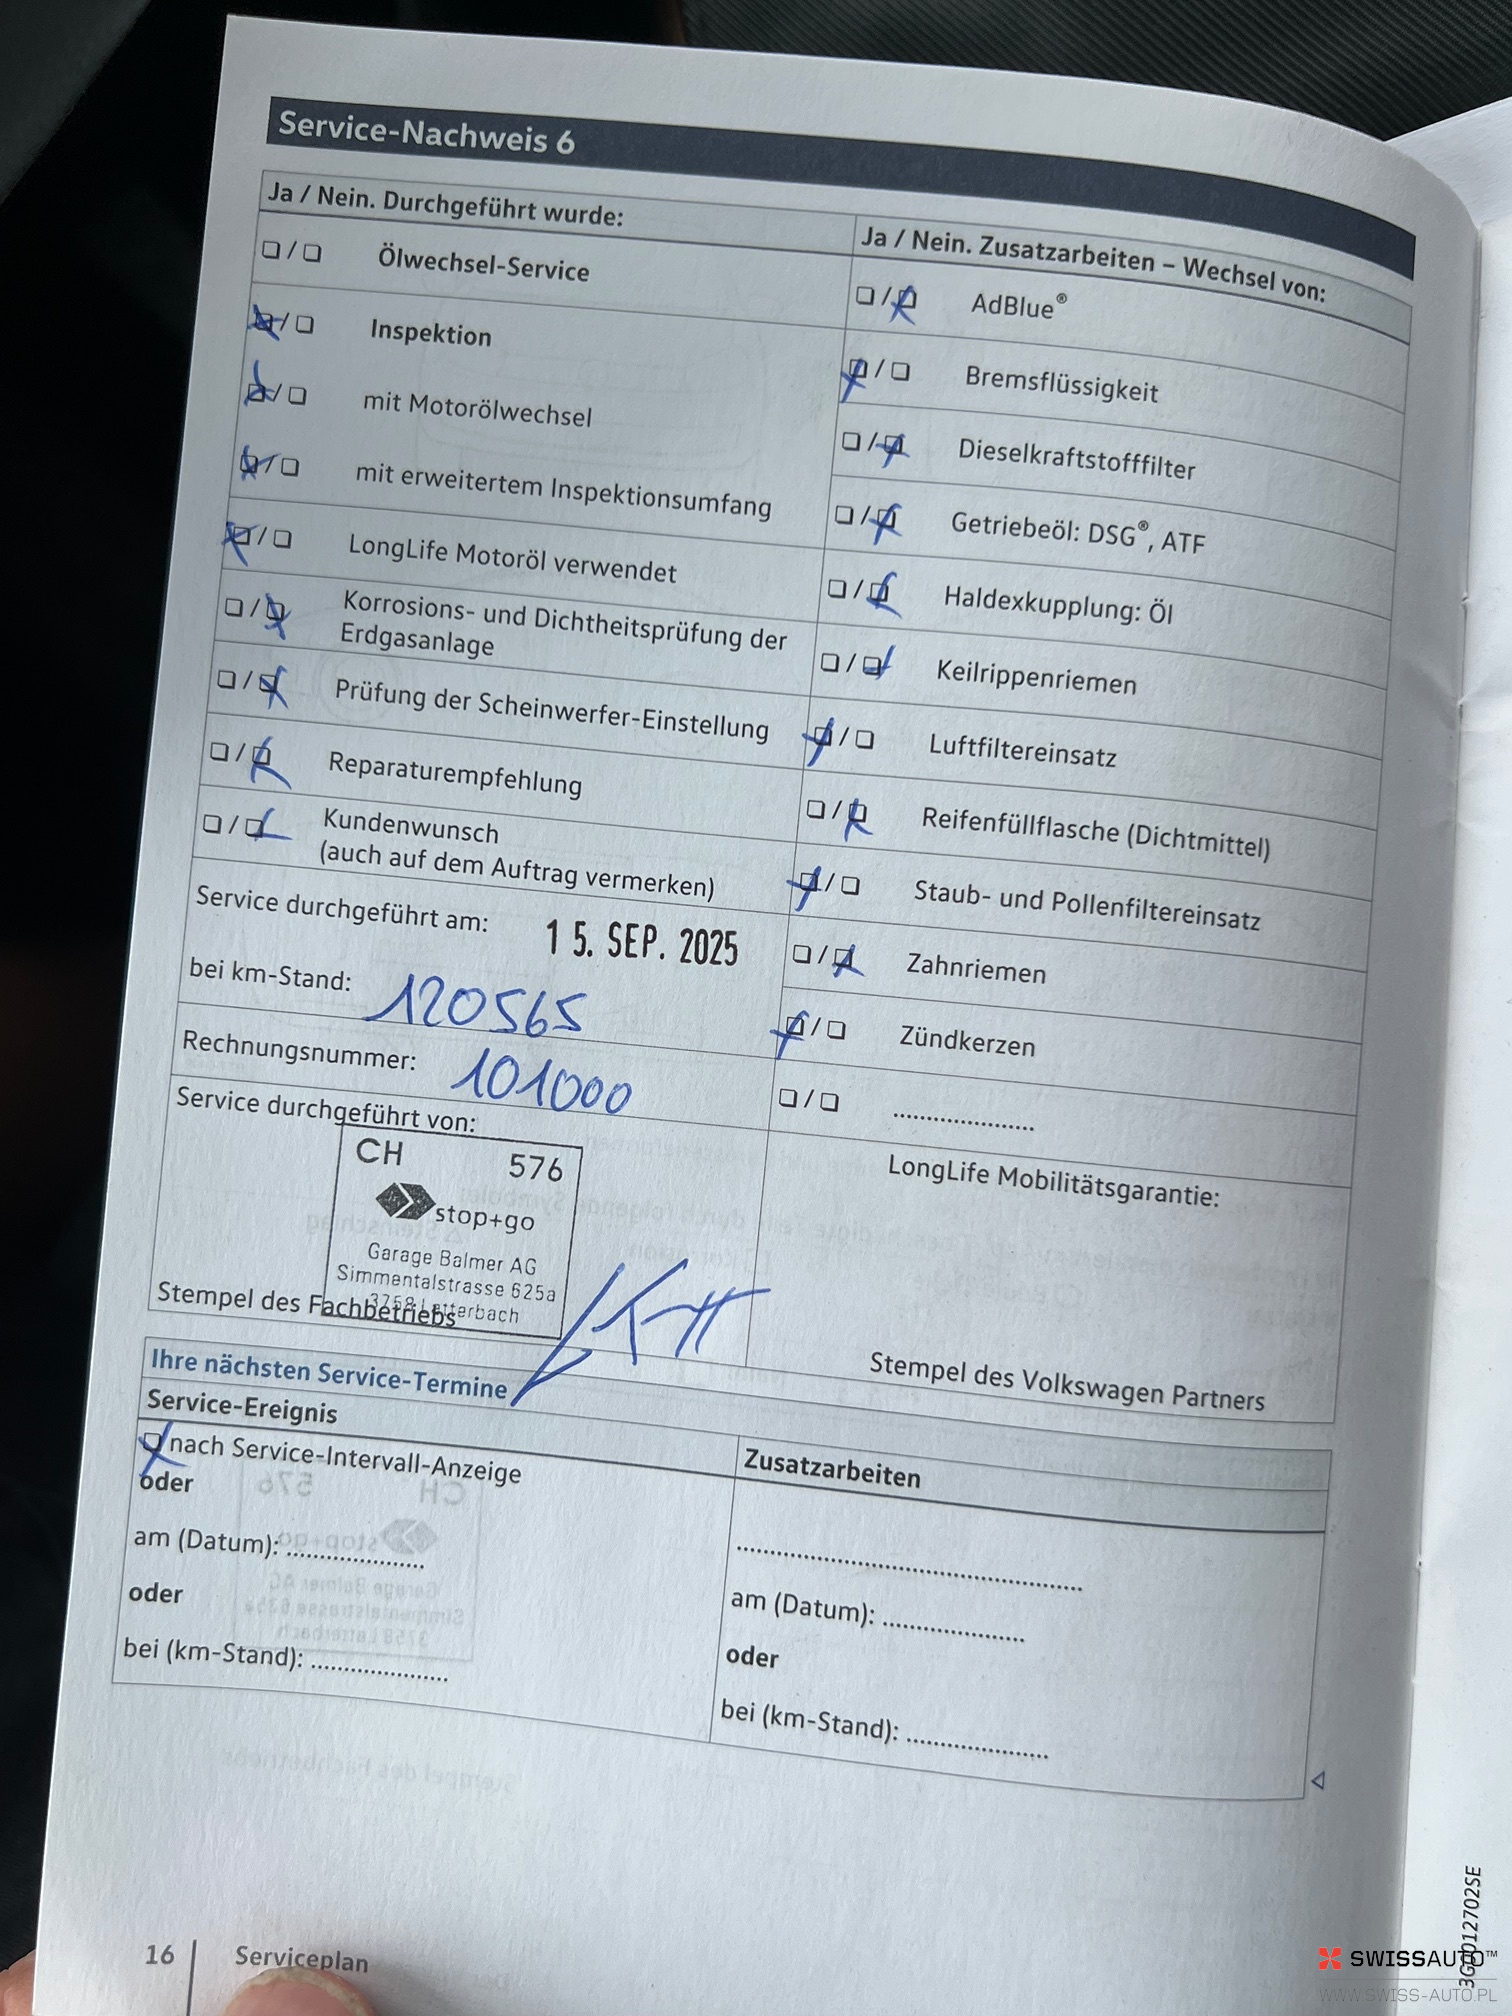 Service-Nachweis 6
Ja / Nein. Durchgeführt wurde:
❏ / ❏ Ölwechsel-Service
❏ / ❏ Inspektion
❏ / ❏ mit Motorölwechsel
❏ / ❏ mit erweitertem Inspektionsumfang
❏ / ❏ LongLife Motoröl verwendet
❏ / ❏ Korrosions- und Dichtheitsprüfung der
Erdgasanlage
❏ / ❏ Prüfung der Scheinwerfer-Einstellung
❏ / ❏ Reparaturempfehlung
❏ / ❏ Kundenwunsch
(auch auf dem Auftrag vermerken)
Service durchgeführt am: 15. SEP. 2025
bei km-Stand: 120565
Rechnungsnummer: 101000
Service durchgeführt von:
CH 576
stop+go
Garage Balmer AG
Simmentalstrasse 625a
3758 Latterbach
Stempel des Fachbetriebs
Ja / Nein. Zusatzarbeiten – Wechsel von:
❏ / ❏ AdBlue®
❏ / ❏ Bremsflüssigkeit
❏ / ❏ Dieselkraftstofffilter
❏ / ❏ Getriebeöl: DSG®, ATF
❏ / ❏ Haldexkupplung: Öl
❏ / ❏ Keilrippenriemen
❏ / ❏ Luftfiltereinsatz
❏ / ❏ Reifenfüllflasche (Dichtmittel)
❏ / ❏ Staub- und Pollenfiltereinsatz
❏ / ❏ Zahnriemen
❏ / ❏ Zündkerzen
❏ / ❏ ....................
LongLife Mobilitätsgarantie:
Stempel des Volkswagen Partners
Ihre nächsten Service-Termine
Service-Ereignis
❏ nach Service-Intervall-Anzeige
oder
am (Datum): ....................
oder
bei (km-Stand): ....................
Zusatzarbeiten
..................................................
am (Datum): ....................
oder
bei (km-Stand): ....................
16 Serviceplan
3G0012702SE
SWISSAUTO™
WWW.SWISS-AUTO.PL